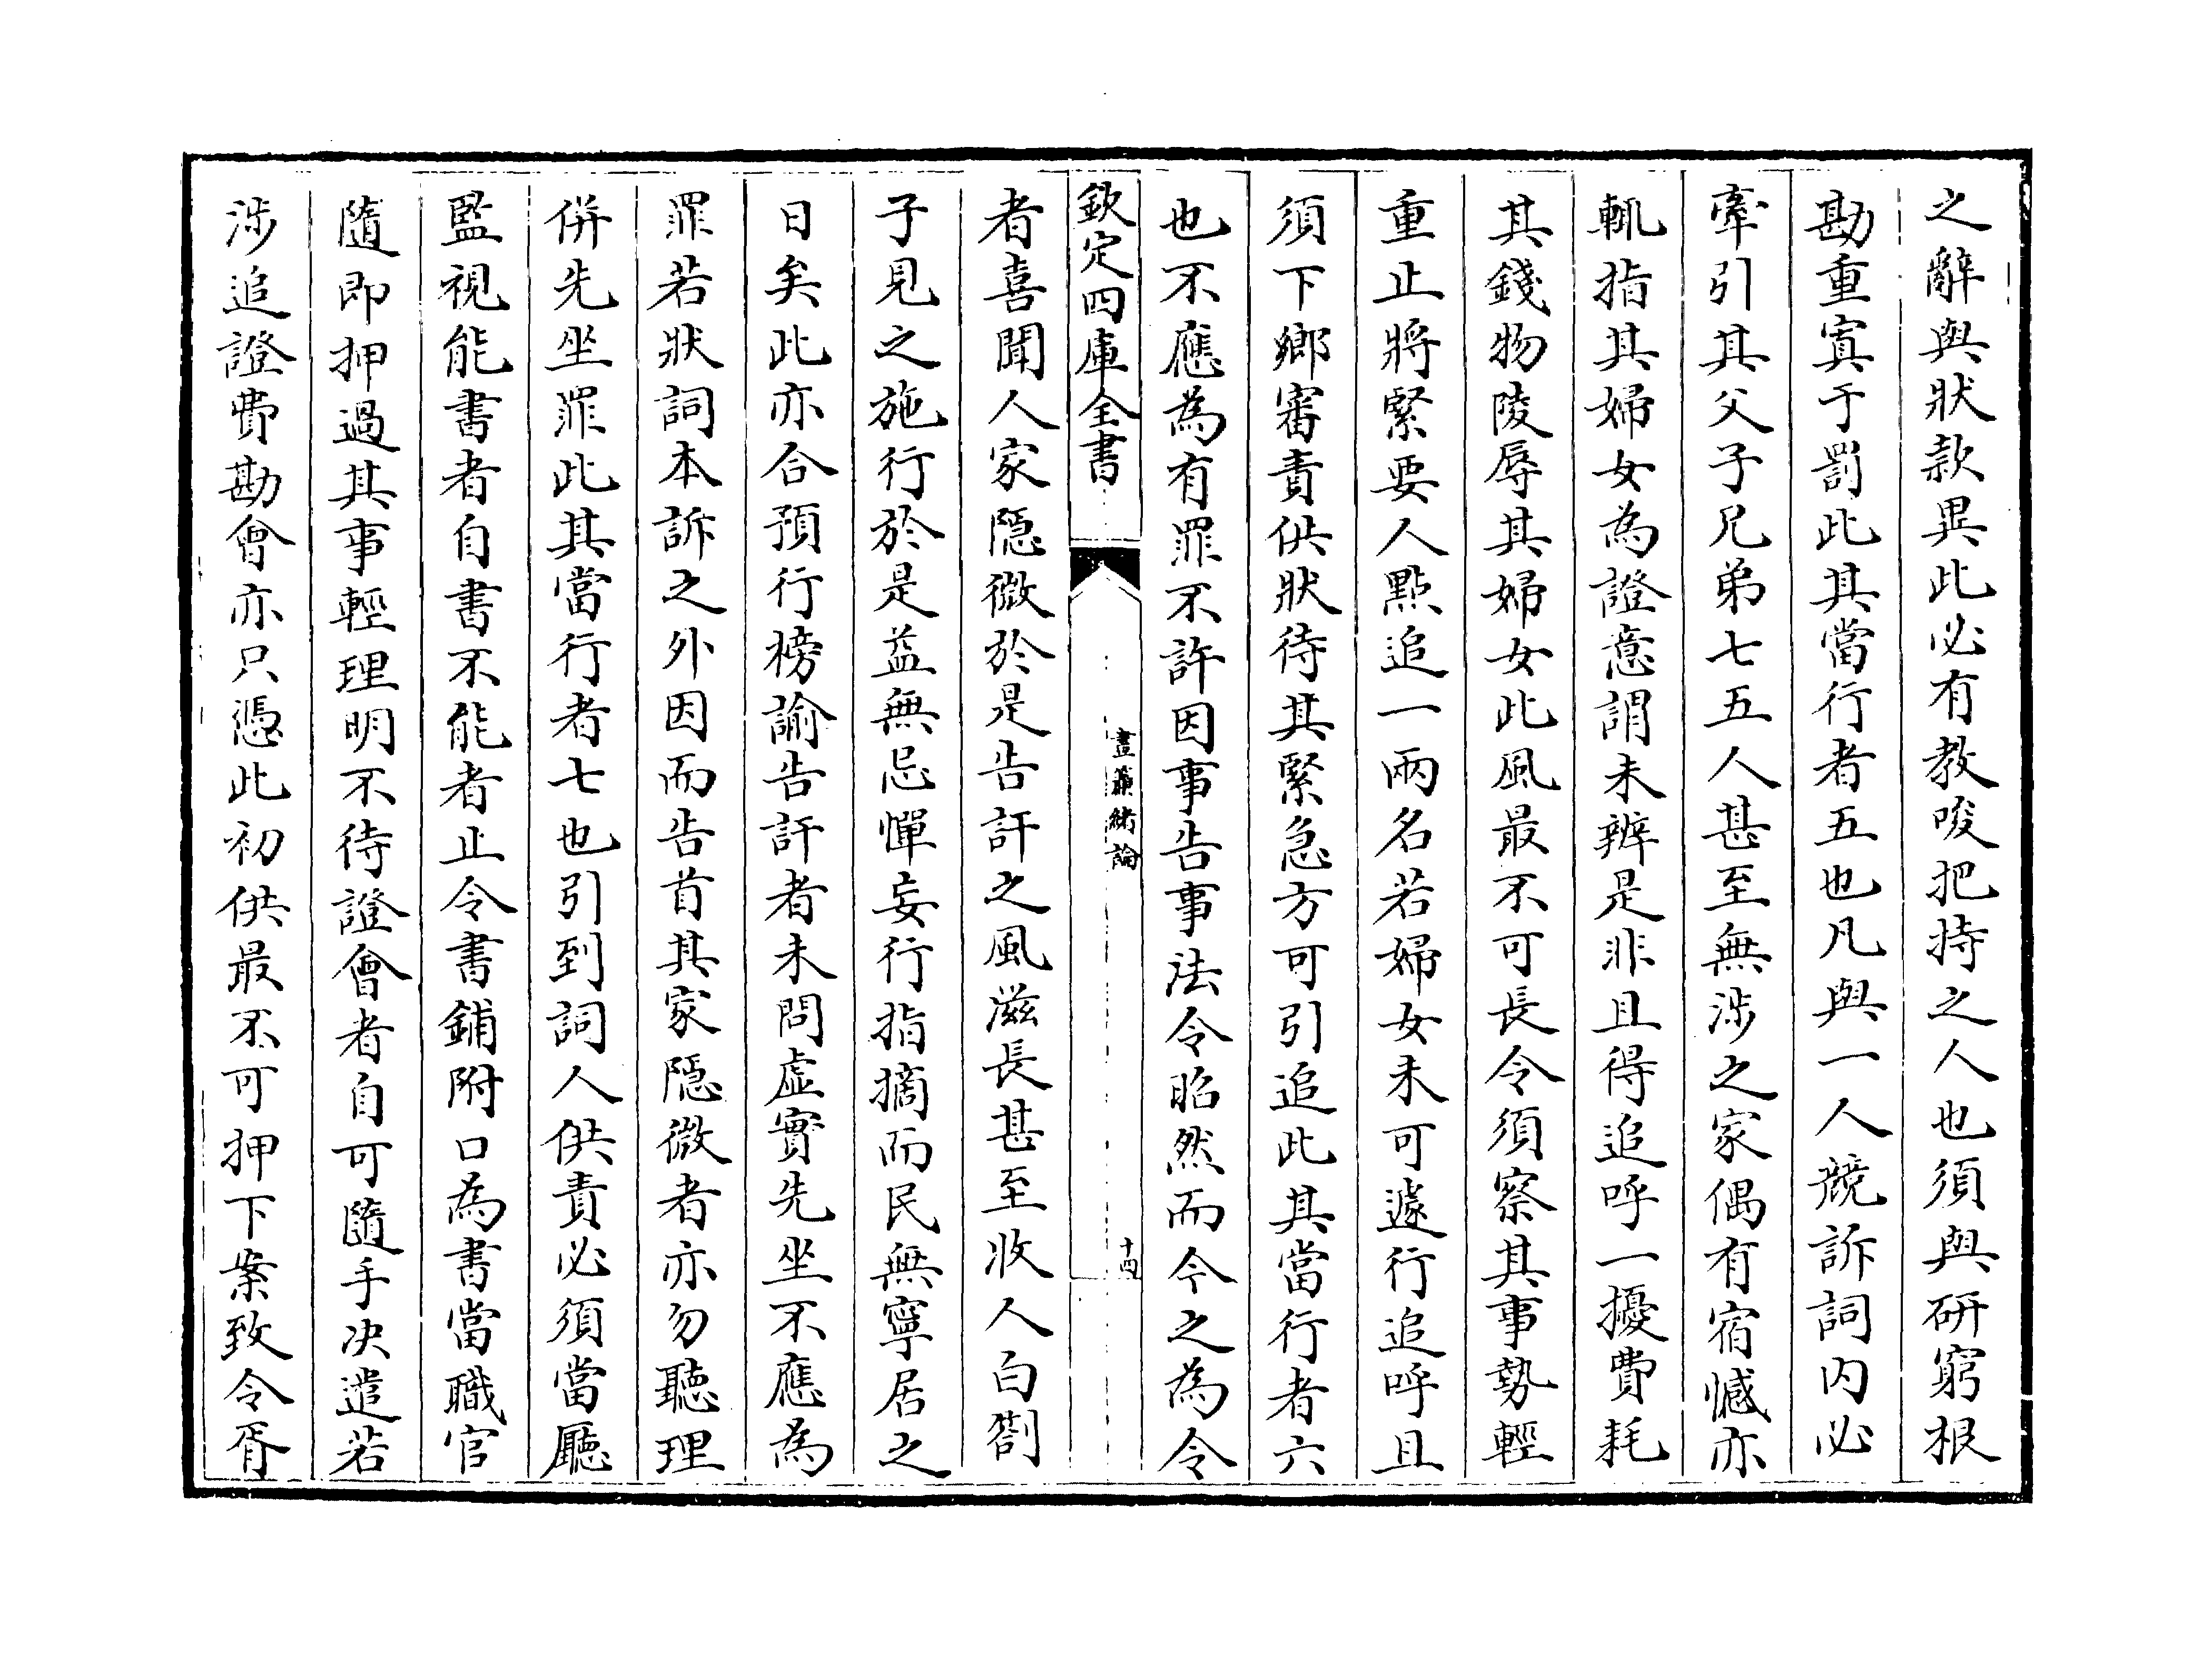 之辭與狀款異此必有教唆把持之人也須與研窮根
勘重寘于罰此其當行者五也凡與一人競訴詞内必
牽引其父子兄弟七五人甚至無涉之家偶有宿憾亦
輒指其婦女為證意謂未辨是非且得追呼一擾費耗
其錢物陵辱其婦女此風最不可長令須察其事勢輕
重止將緊要人㸃追一兩名若婦女未可遽行追呼且
須下鄉審責供狀待其緊急方可引追此其當行者六
也不應為有罪不許因事告事法令昭然而今之為令
欽定四庫全書
晝簾緒論
十四
者喜聞人家隠微於是告訐之風滋長甚至收人白劄
子見之施行於是益無忌憚妄行指摘而民無寧居之
日矣此亦合預行榜諭告訐者未問虛實先坐不應為
罪若狀詞本訴之外因而告首其家隠微者亦勿聽理
併先坐罪此其當行者七也引到詞人供責必須當廳
監視能書者自書不能者止令書鋪附口為書當職官
隨即押過其事輕理明不待證會者自可隨手决遣若
涉追證費勘會亦只憑此初供最不可押下案致令胥